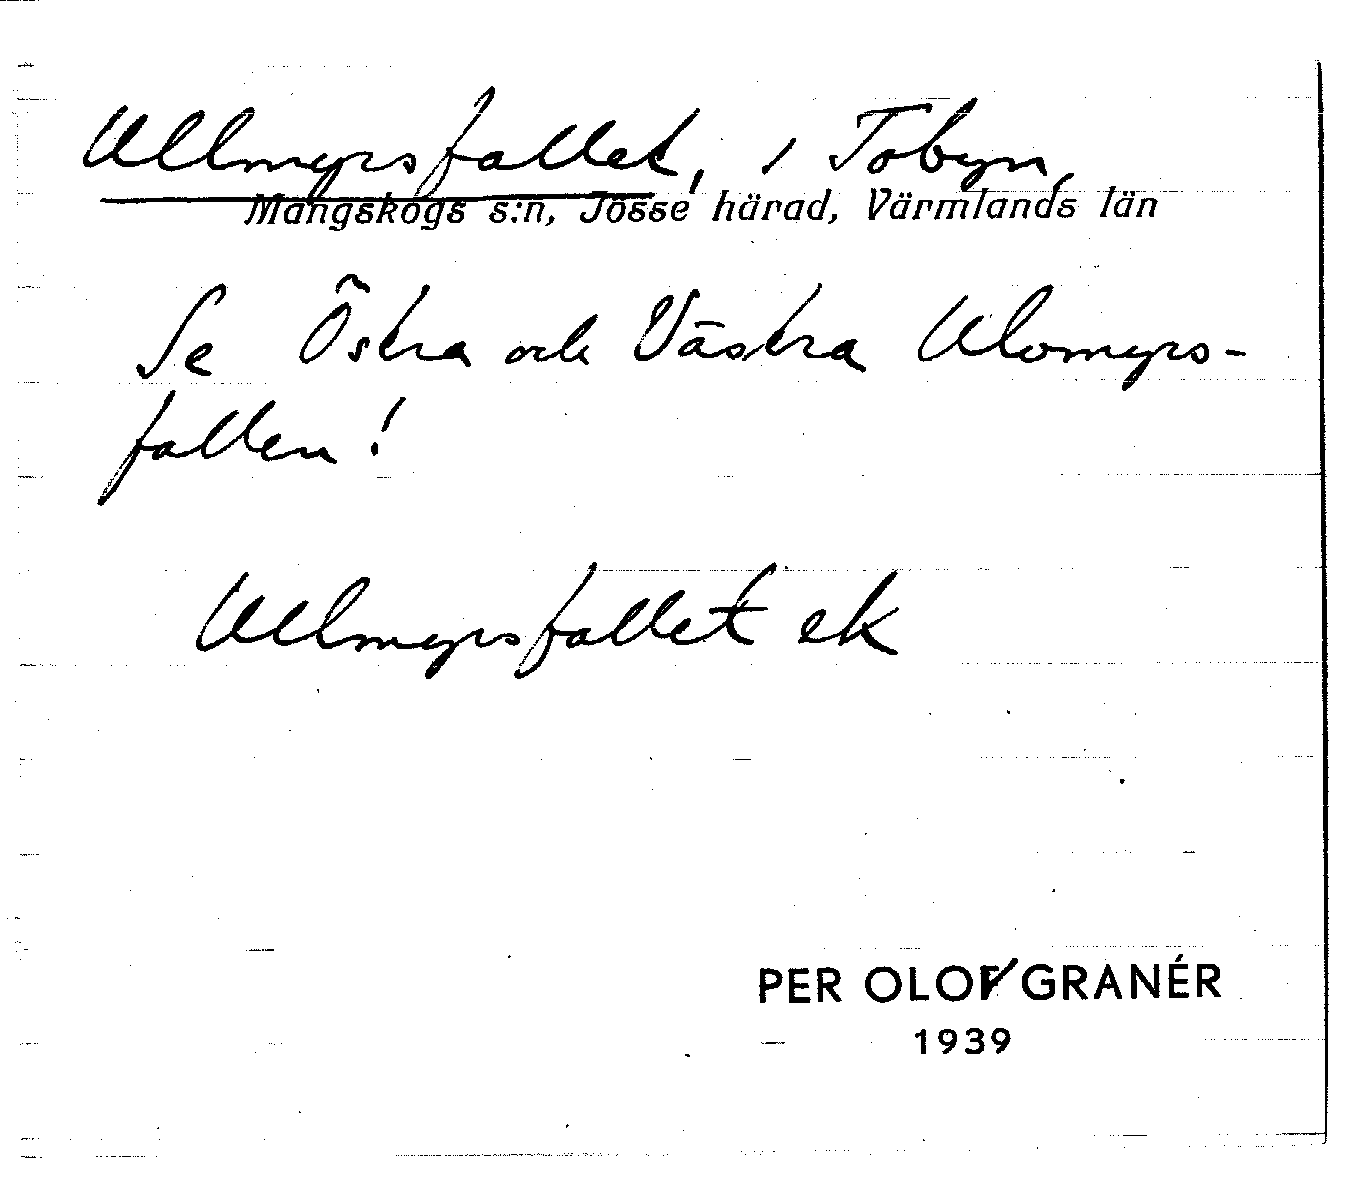 Ullmyrsfallet, i Tobyn,
Mangskogs s:n, Jösse härad, Värmlands län
Se Östra och Västra Ulvmyrs-
fallen!
Ullmyrsfallet ek
PER OLOV GRANÉR
1939